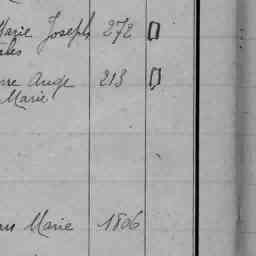 Marie Joseph 272
Ange 213
Marie
Marie 1806